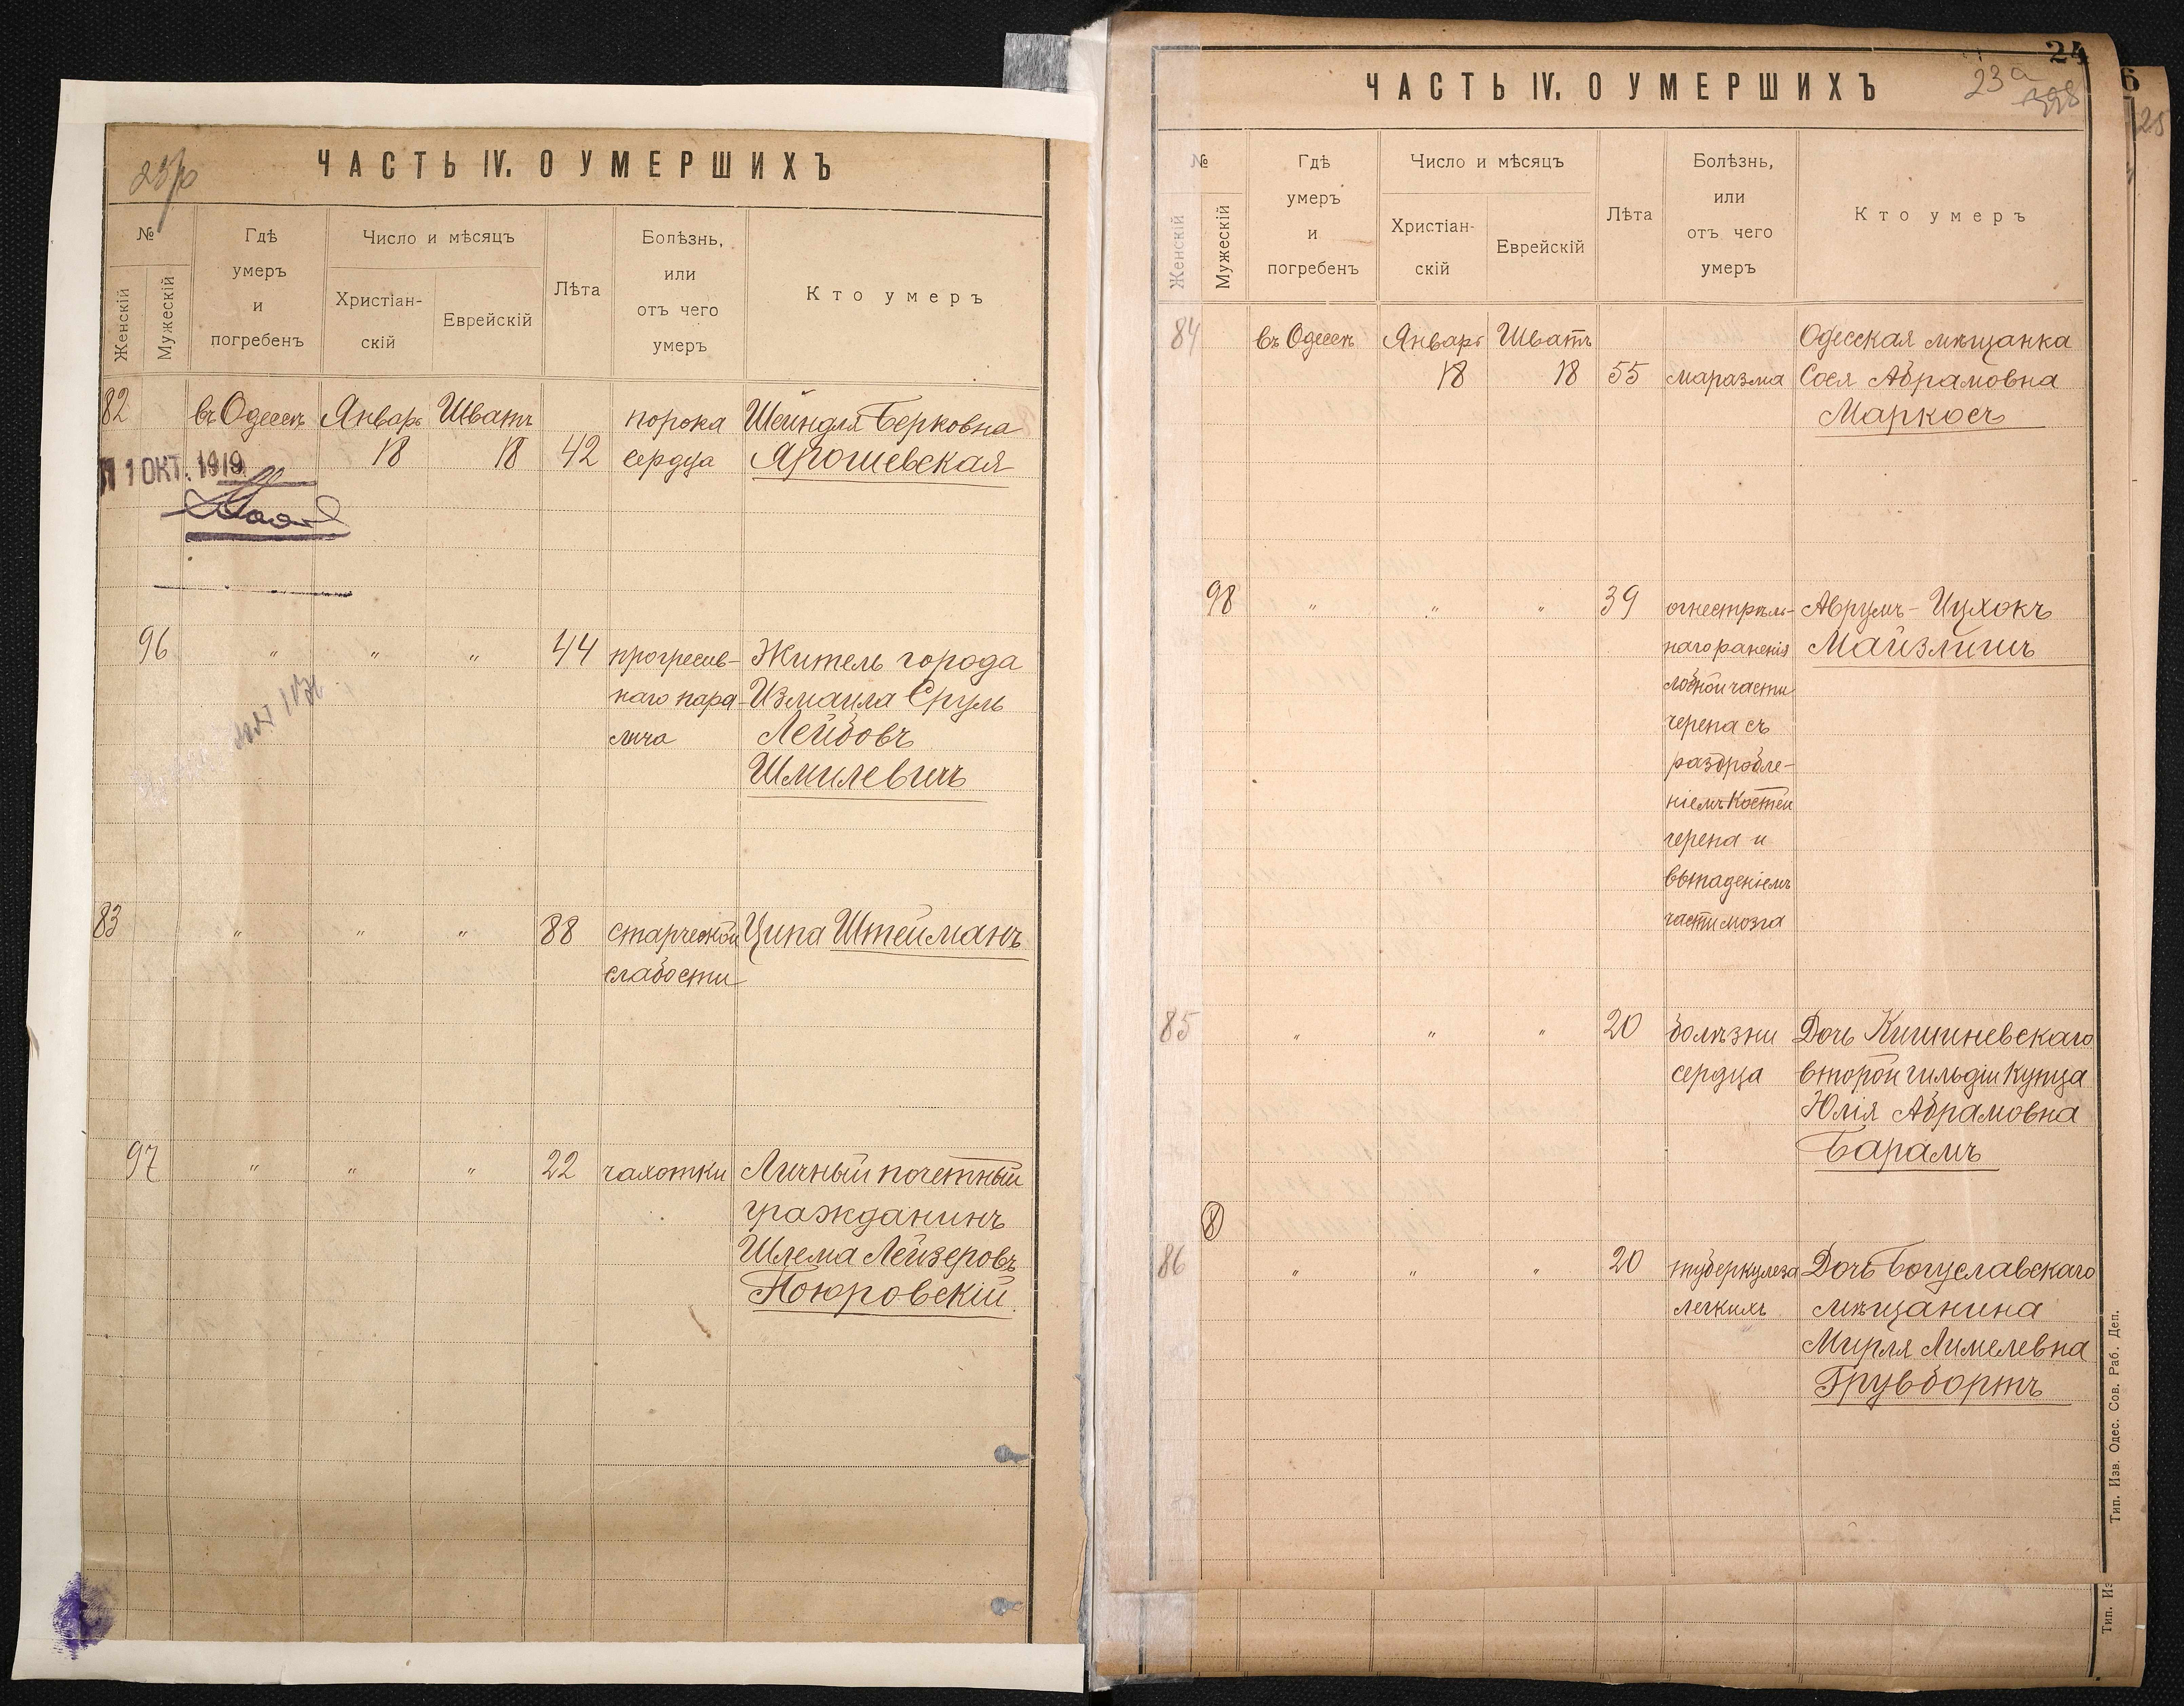 ЧАСТЬ IV. О УМЕРШИХЪ
№
Женскій
Мужескій
Гдѣ
умеръ
и
погребенъ
Число и мѣсяцъ
Христіан-
скій
Еврейскій
Лѣта
Болѣзнь,
или
отъ чего
умеръ
Кто умеръ
82 въ Одессѣ Январь Шватъ порока Шейндля Берковна
18 18 42 сердца Ярошевская
11 ОКТ. 1919
96 " " " 44 прогресив- Житель города
наго пара- Измаила Сруль
лича Лейбовъ
Шмилевичъ
83 " " " 88 старческой Ципа Штейманъ
слабости
97 " " " 22 чахотки Личный почетный
гражданинъ
Шлема Лейзеровъ
Поюровскій
24
ЧАСТЬ IV. О УМЕРШИХЪ
23а
398
6
25
№
Женскій
Мужескій
Гдѣ
умеръ
и
погребенъ
Число и мѣсяцъ
Христіан-
скій
Еврейскій
Лѣта
Болѣзнь,
или
отъ чего
умеръ
Кто умеръ
84 въ Одессѣ Январь Шватъ Одесская мѣщанка
18 18 55 маразма Сося Абрамовна
Маркосъ
98 " " " 39 огнестрѣль- Аврумъ-Ицхокъ
наго раненія Майзлишъ
лобной части
черепа съ
раздробле-
ніемъ костей
черепа и
выпаденіемъ
части мозга
85 " " " 20 болѣзни Дочь Кишиневскаго
сердца второй гильдіи купца
Юлія Абрамовна
Барамъ
8
86 " " " 20 туберкулеза Дочь Богуславскаго
легкихъ мѣщанина
Мирля Лимелевна
Грувбортъ
Тип. Изв. Одес. Сов. Раб. Деп.
Тип. Из